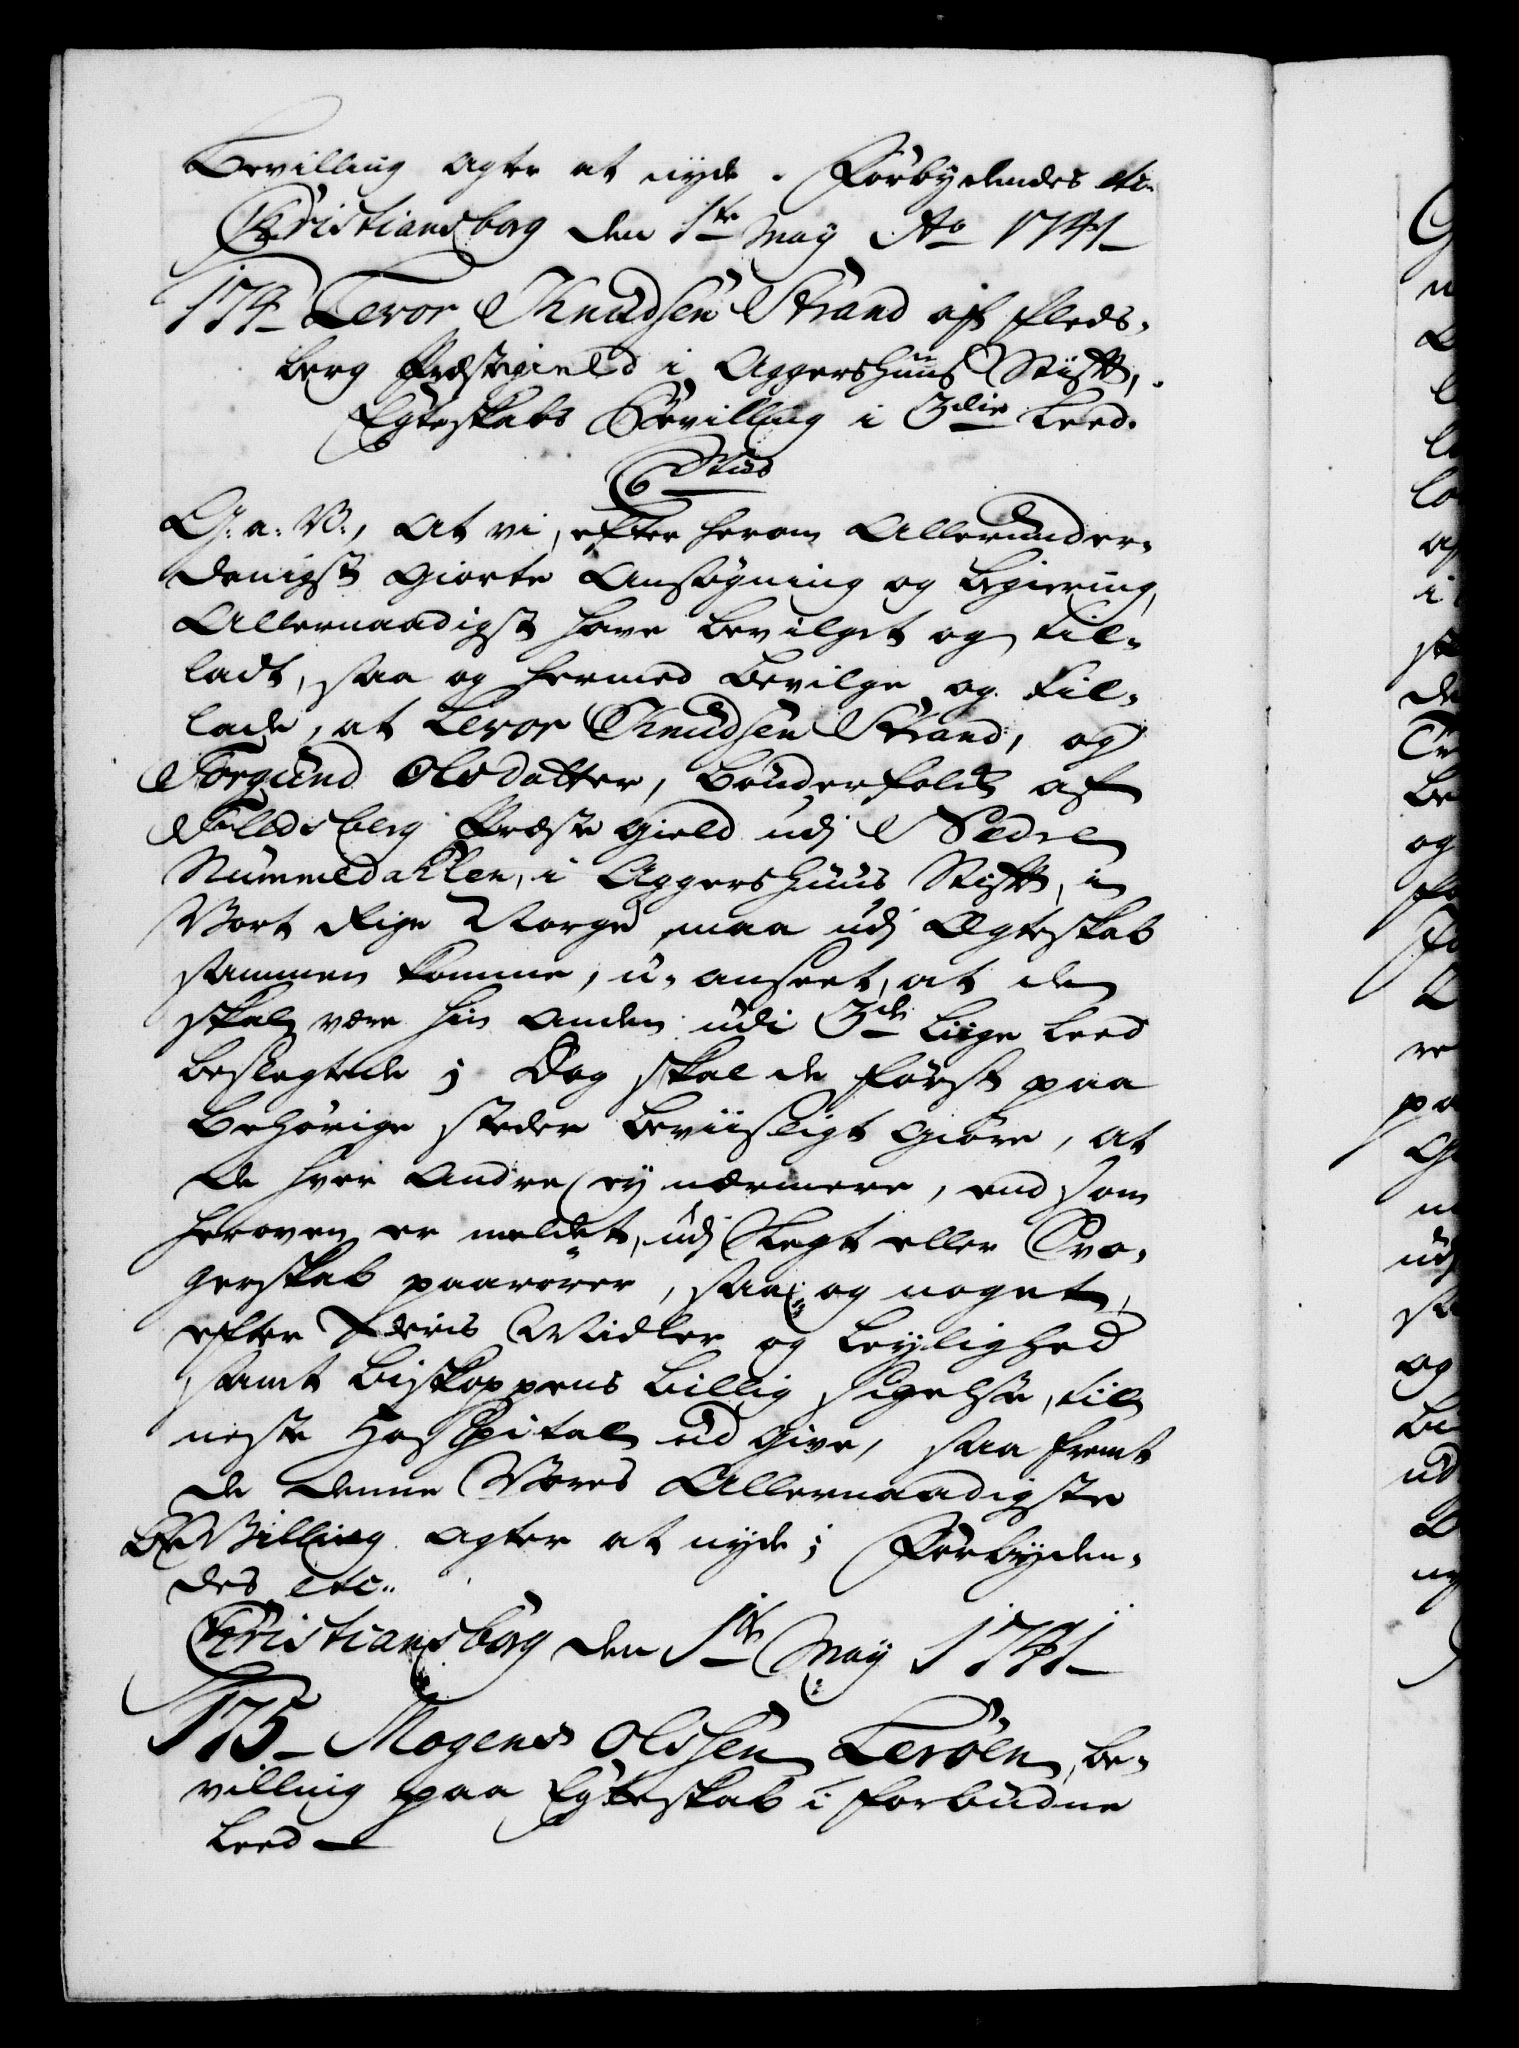 Bevilling agter at nyde. Forbydendes etc.
Christiansborg den 1te May Ao 1741
174 Levor Knudsen Strand af Fleds-
berg Præstegield i Aggershuus Stift,
Egteskabs Bevilling i 3die Leed.
G: a: V:, At vi, efter herom Allerunder-
danigst giorte Ansøgning og Begiering,
Allernaadigst have bevilget og til-
ladt, saa og hermed bevilge og til-
lade, at Levor Knudsen Strand, og
Torgund Olsdatter, bønderfolk af
Fledsberg Præste Gield udj Nedre
Nummedahlen, i Aggershuus Stift, i
Vort Rige Norge, maa udj Ægteskab
sammen komme, u-anseet, at de
skal være hin anden udi 3de Liige Leed
beslegtede; Dog skal de først paa
behørige steder beviisligt giøre, at
de hver Andre ey nærmere, end som
heroven er meldet, udj Slegt eller Svo-
gerskab paarører, saa og noget,
efter deris Midler og Leylighed
samt Biskoppens billig sigelse, til
neste Hospital ud give, saa fremt
de denne Vores Allernaadigste
Bevilling agter at nyde; Forbyden-
des etc.
Christiansborg den 1te May 1741
175 Mogens Olssen Lerøen, be-
villing paa Egteskab i forbudne
Leed